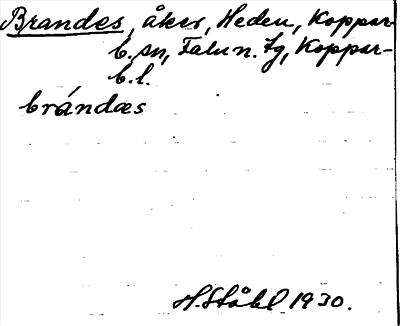 Brandes, åker, Heden, Koppar-
b. sn, Falu n. tg, Koppar-
b. l.
brándæs
H. Ståhl 1930.